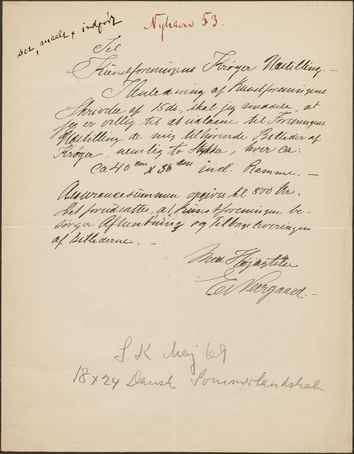 Nyhavn 53.
set, meelt & indført
Til
Kunstforeningens Krøyer Udstilling. —
I Anledning af Kunstforeningens
Skrivelse af 15 ds. skal jeg meddele, at
jeg er villig til at udlaane til Foreningens
Udstilling de mig tilhørende Billeder af
Krøyer, nemlig to Stykker, hver ca:
ca 40 cm x 38 cm incl. Ramme. —
Assurancesummen opgives til 800 Kr.
Det forudsættes, at Kunstforeningen be-
sørger Afhentning og Tilbageleveringen
af Billederne. —
Med Højagtelse
E. Nørgaard. —
S K Meij 69
18 x 24 Dansk Sommerlandskab